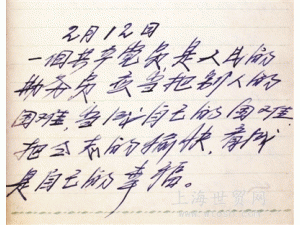 2月12日
一个共产党员是人民的
勤务员,应当把别人的
困难,当成自己的困难,
把同志的愉快,看成
是自己的幸福。
上海世贸网